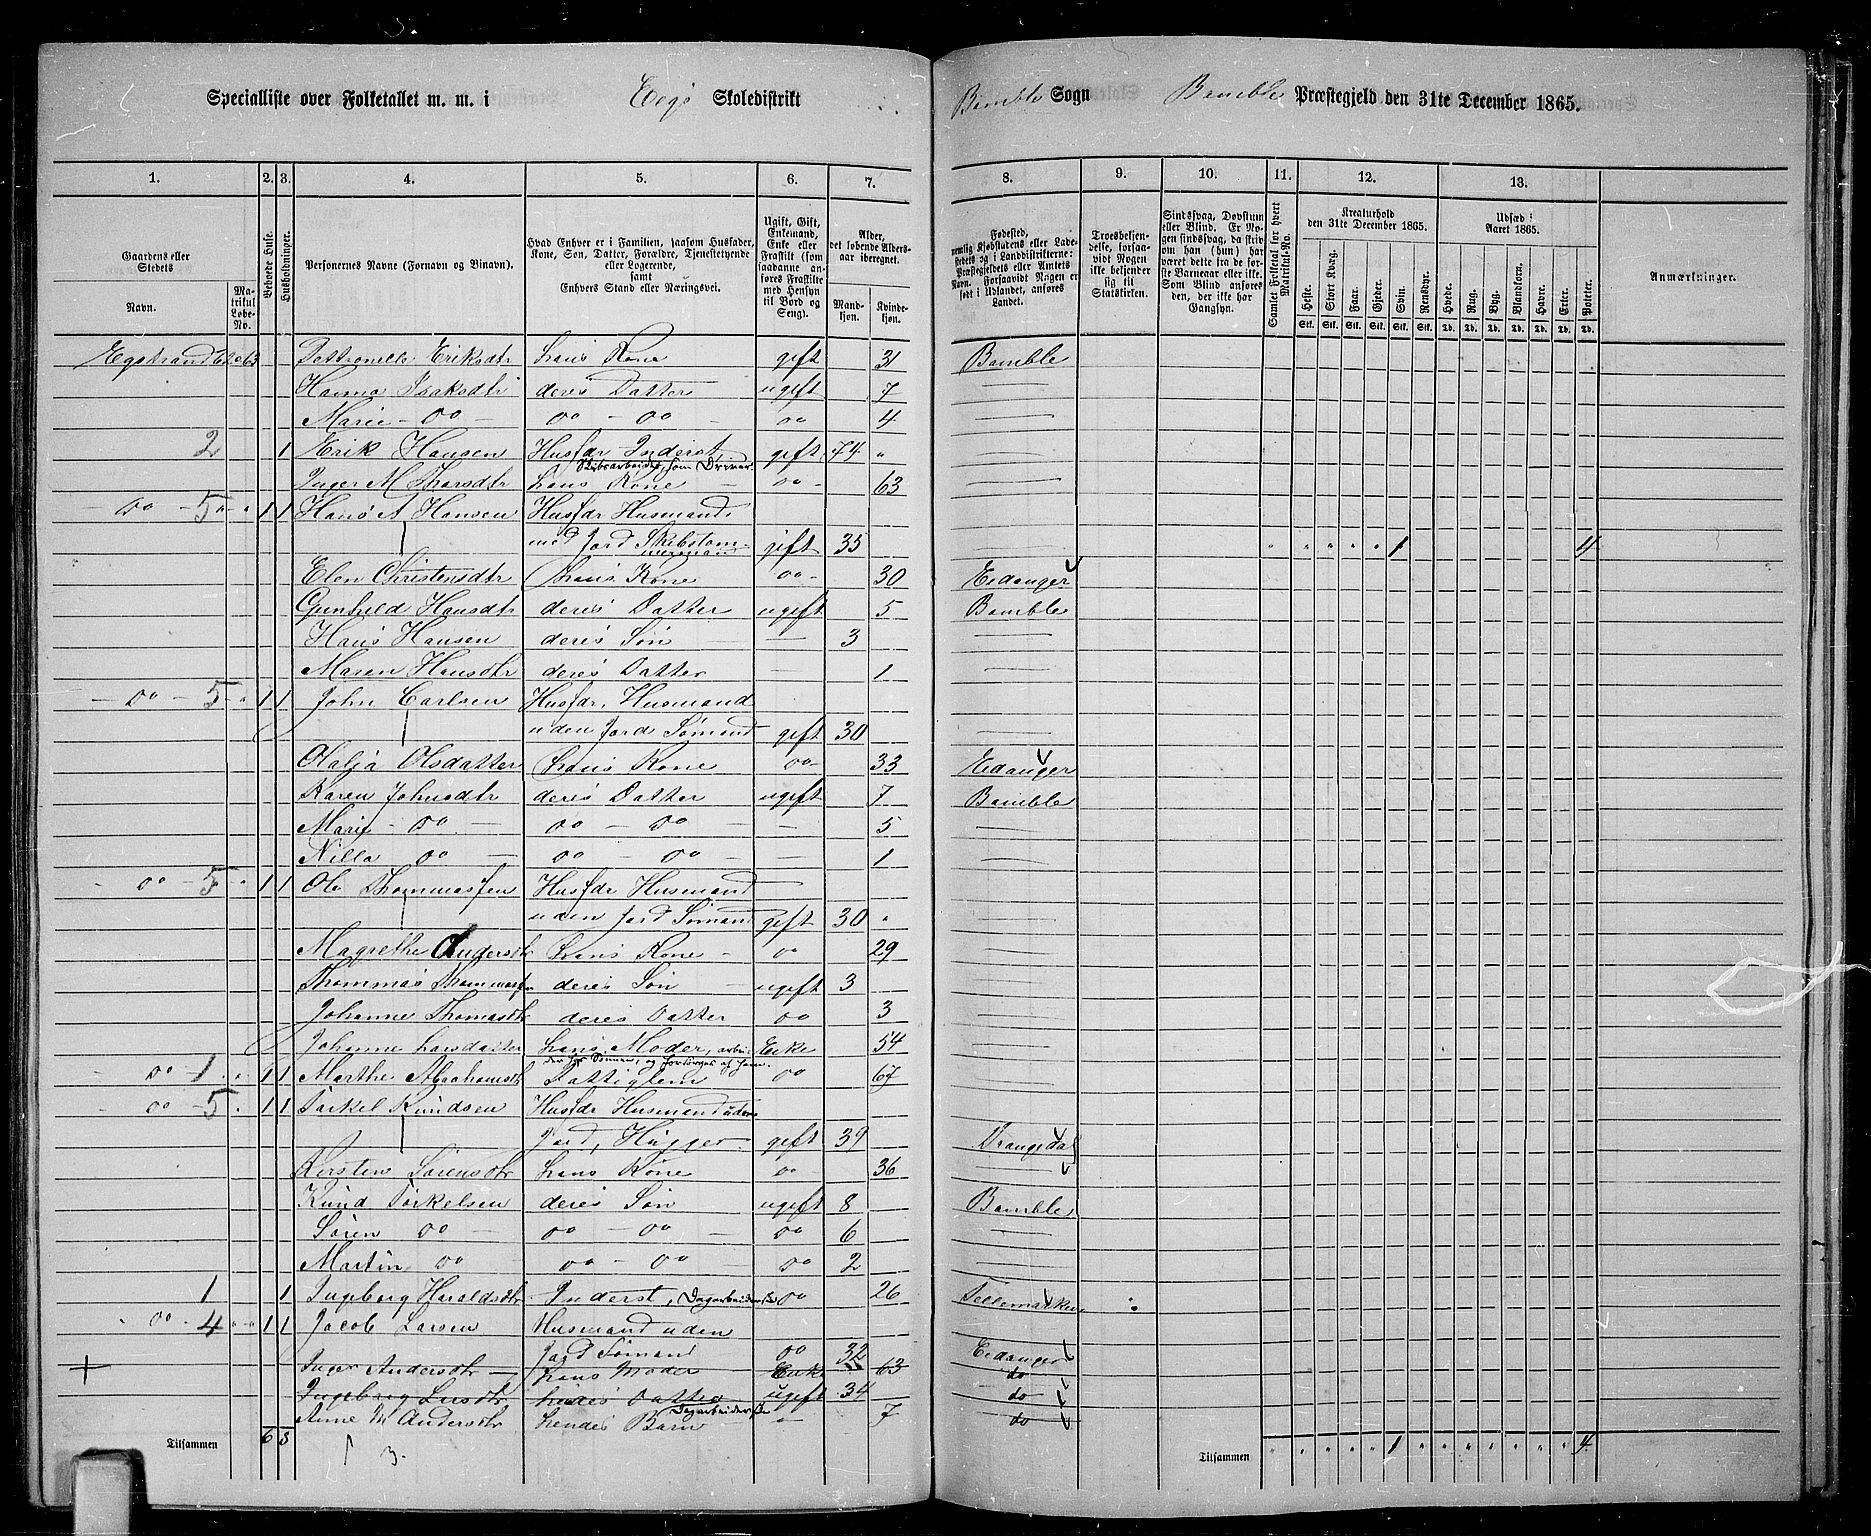 Specialliste over Folketallet m. m. i Skoledistrikt Bamble Sogn Bamble Præstegjeld den 31te December 1865.
1. 2. 3. 4. 5. 6. 7. 8. 9. 10. 11. 12. 13.
Gaardens eller Stedets
Navn.
Matrikul Løbe-No.
Beboede Huse.
Husholdninger.
Personernes Navne (Fornavn og Vinavn).
Hvad Enhver er i Familien, saasom Husfader, Kone, Søn, Datter, Forældre, Tjenestetyende eller Logerende, samt Enhvers Stand eller Næringsvei.
Ugift, Gift, Enkemand, Enke eller Fraskilt (som saadanne anføres for Fraskilte med Hensyn til Bord og Seng).
Alder, det løbende Aldersaar iberegnet.
Mandkjøn. Kvindekjøn.
Anmærkninger.
Kreaturhold den 31te December 1865.
Udsæd i Aaret 1865.
Samlet Folketal for hvert Matrikul-No.
Heste. Stort Kvæg. Faar. Gjeder. Svin. Rensdyr. Hvede. Rug. Byg. Blandkorn. Havre. Erter. Poteter.
Egstrand 62 63 Pettronelle Eriksdtr hans Kone gift 31 Bamble
Hanna Isaksdtr deres Datter ugift 7
Marie do do do do 4
2 1 Erik Hansen Husfdr Inderst, gift 74
Inger M Larsdtr hans Kone do 63
do 5 1 1 Hans A Hansen Husfdr Husmand
med Jord Skibstømmermand gift 35 1 4
Elen Christensdtr hans Kone do 30 Eidanger
Gunhild Hansdtr deres Datter ugift 5 Bamble
Hans Hansen deres Søn 3
Maren Hansdtr deres Datter 1
do 5 1 1 John Carlsen Husfdr, Husmand
uden Jord Sømand gift 30
Olsdatter hans Kone do 33 Eidanger
Karen Johnsdtr deres Datter ugift 7 Bamble
Marie do do do 5
Nilla do do do 1
do 5 1 1 Ole Thommassen Husfdr Husmand
uden Jord Sømand gift 30
Magrethe Andersdtr hans Kone do 29
Thommas Thommassen deres Søn ugift 3
Johanne Thomasdtr deres Datter do 3
Johanne Larsdatter hans Moder, Enke 54
do 1 1 1 Marthe Abrahamsdtr Fattiglem do 67
do 5 1 1 Tarkel Knudsen Husfdr Husmand uden
Jord, Hugger gift 39 Drangedal
Kirsten Sørensdtr hans Kone do 36
Knud Torkelsen deres Søn ugift 8 Bamble
Søren do do do do 6
Martin do do do do 2
1 1 Ingeborg Haraldsdtr Inderst, Dagarbeiderske do 26 Tellemarken
do 4 1 1 Jacob Larsen Husmand uden
Jord Sømand do 32 Eidanger
Inger Andersdtr hans Moder Enke 63 do
Ingeborg Larsdtr hendes Datter ugift 34 do
Dagarbeiderske
Anne M Andersdtr hendes Barn 7 do
Tilsammen 6 8 Tilsammen 1 4
3.